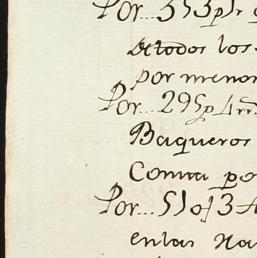 Por... 353p
de todos los
por menor
Por... 295p4rr
Baqueros
Comta po
Por... 510p3
enlas Ha